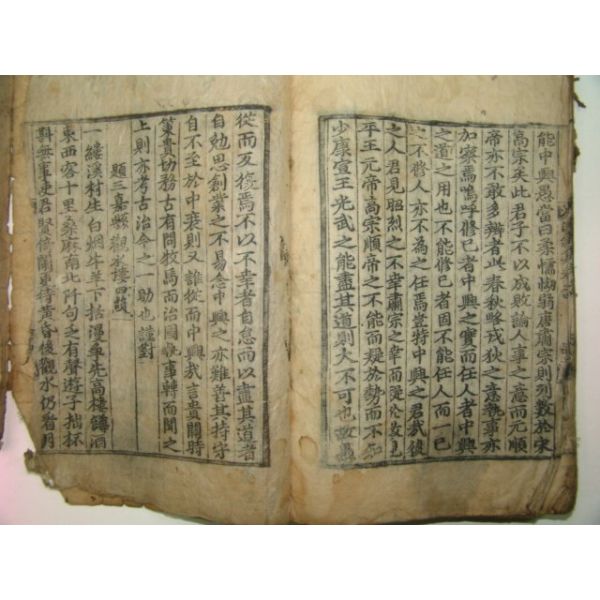 能中興愚當曰柔懦
唐肅宗則列數於宋
高宗矣此君子不以成敗論人事之意而元順
帝亦不敢多辨者此春秋略戎狄之意執事亦
加察焉嗚呼修已者中興之實而任人者中興
之道之用也不能修已者固不能任人而一已
之不修人亦不為之任焉豈特中興之君哉後
之人君見昭烈之不幸肅宗之幸而
平王元帝高宗順帝之不能而疑於勢而不知
少康宣王光武之能盡其道則大不可也故愚
從而反復焉不以不幸者自怠而以盡其道者
自勉思創業之不易念中興之亦難善其持守
自不至於中衰則又誰從而中興哉言貴關時
策貴切務古有問牧馬而治國
事轉而聞之
上則亦考古治今之一助也謹對
題三嘉縣觀水樓四韻
一縷溪村生白烟牛羊下括漫爭先高樓
酒
東西客十里桑麻南北阡句乏有聲遊子拙杯
無事
君賢倚闌更待黃昏後觀水仍看月